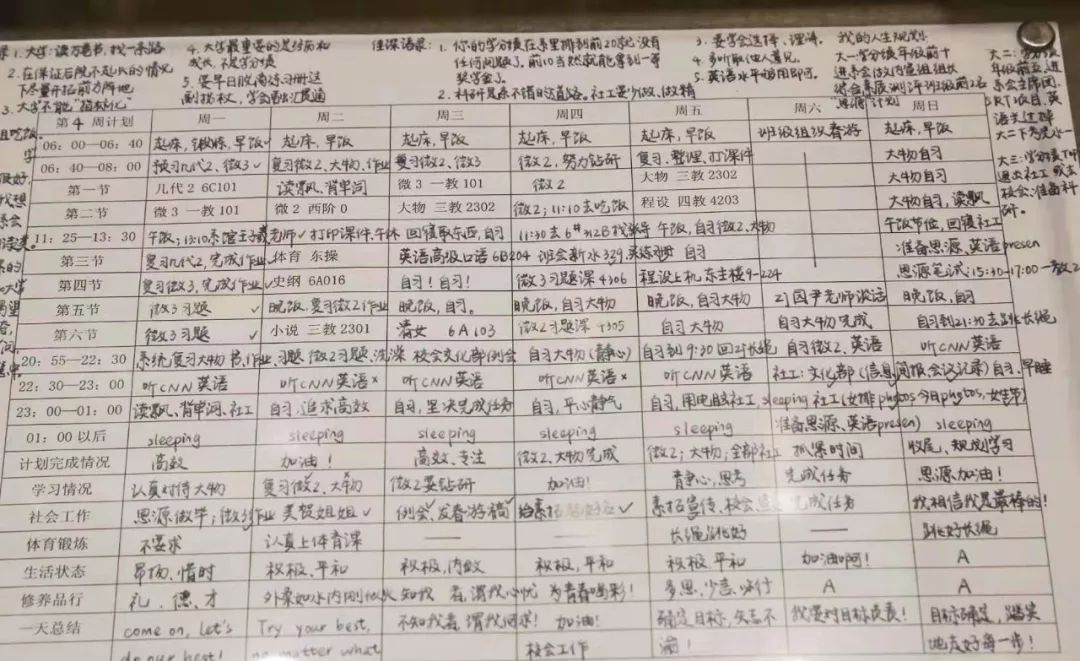 1. 大学：读万卷书，找一条路
2. 在保证后院不起火的情况
下尽量开拓前方阵地
3. 大学不能"摇
4. 大学最重要的是经历和
成长，不是学分绩
5. 要早日脱离练习册这
副拐杖，学会融汇贯通
佳深语录：1. 你的学分绩在系里排到前20就没有
任何问题了，前10当然就能拿到一等
奖学金了。
2. 科研具体不错的话直路。社工要少做，做精
3. 要学会选择，理清。
4. 多听取他人意见。
5. 英语水平够用即可。
我的人生规划
大一：学分绩年级前十
进系会做内宣组组长
综合素质测评班级前2名
"思源"计划
大二：学分绩
年级前五，进
系会主席团，
SRT项目，英
语大二下
大三：学分绩
退出社工或去
校会；准备科
研。
第 4 周计划 周一 周二 周三 周四 周五 周六 周日
06：00—06：40 起床，锻炼，早饭 起床，早饭 起床，早饭 起床，早饭 起床，早饭 班级组织春游 起床，早饭
06：40—08：00 预习几代2，微3✓ 复习微2、大物、作业 复习微2、微3 微2，努力钻研 复习、整理、打课件 大物自习
第一节 几代2 6C101 读飘，背单词 微3 一教101 微2 大物 三教2302 大物自习
第二节 微3 一教101 微2 西阶0 大物 三教2302 微2；11:10去吃饭 程设 四教4203 大物自习，读飘
11：25—13：30 午饭；13:10系馆 老师✓ 打印课件、午休 回寝取东西，自习 11:30去6#312B找 午饭，自习微2、大物 午饭节俭，回寝社工
第三节 复习几代2，完成作业 体育 东操 英语高级口语6B204 班会新水339，英 自习 准备思源、英语presen
第四节 复习微3，完成作业✓ 史纲 6A016 自习！自习！ 微3习题课4306 程设上机 东主楼9-224 思源笔试：15:30—17:00 一教2
第五节 微3习题 ✓ 晚饭，复习微2作业 晚饭，自习。 晚饭，自习大物 晚饭，自习大物 2J园尹老师谈话 晚饭，自习
第六节 微3习题 ✓ 小说 三教2301 清女 6A103 微2习题课 4305 自习大物 自习大物完成 自习到21:30去跳长绳
20：55—22：30 系统复习大物书，作业、习题 微2习题，洗澡 校会文化部例会 自习大物（静心） 自习到9:30回2J长绳 自习微2、英语 听CNN英语
22：30—23：00 听CNN英语 听CNN英语× 听CNN英语 听CNN英语× 听CNN英语 社工：文化部（信息简报会议记录）自习，早睡
23：00—01：00 读飘、背单词、社工 自习，追求高效 自习，坚决完成任务 自习，平心静气 自习，用电脑社工，sleeping 社工（女排photos今日photos，女生节）
01：00 以后 sleeping sleeping sleeping sleeping sleeping 准备思源、英语presen） sleeping
计划完成情况 高效 加油！ 高效、专注 微2、大物完成 微2；大物；全部社工 抓紧时间 收尾，规划学习
学习情况 认真对待大物 复习微2、大物 微2要钻研 加油！ 静心，思考 完成任务 思源加油！
社会工作 思源做毕；微3作业 美妆姐姐✓ 例会✓、发春游稿✓ 给素拓 ✓ 素拓宣传，校会 完成任务 我相信我是最棒的！
体育锻炼 不要求 认真上体育课 —— —— 长绳跳好 —— 跳好长绳
生活状态 昂扬、惜时 积极，平和 积极，内敛 积极、平和 积极、平和 加油啊！ A
修养品行 礼、德、才 外柔如水内刚似火 知我者，谓我心忧 为青春喝彩！ 多思，少言，球行 A A
一天总结 come on, let's Try your best, 不知我者，谓我何求！ 加油！ 确定目标，矢志不 我要对目标负责！ 目标确定，踏实
do our best! no matter what 校会工作 渝！ 地走好每一步！